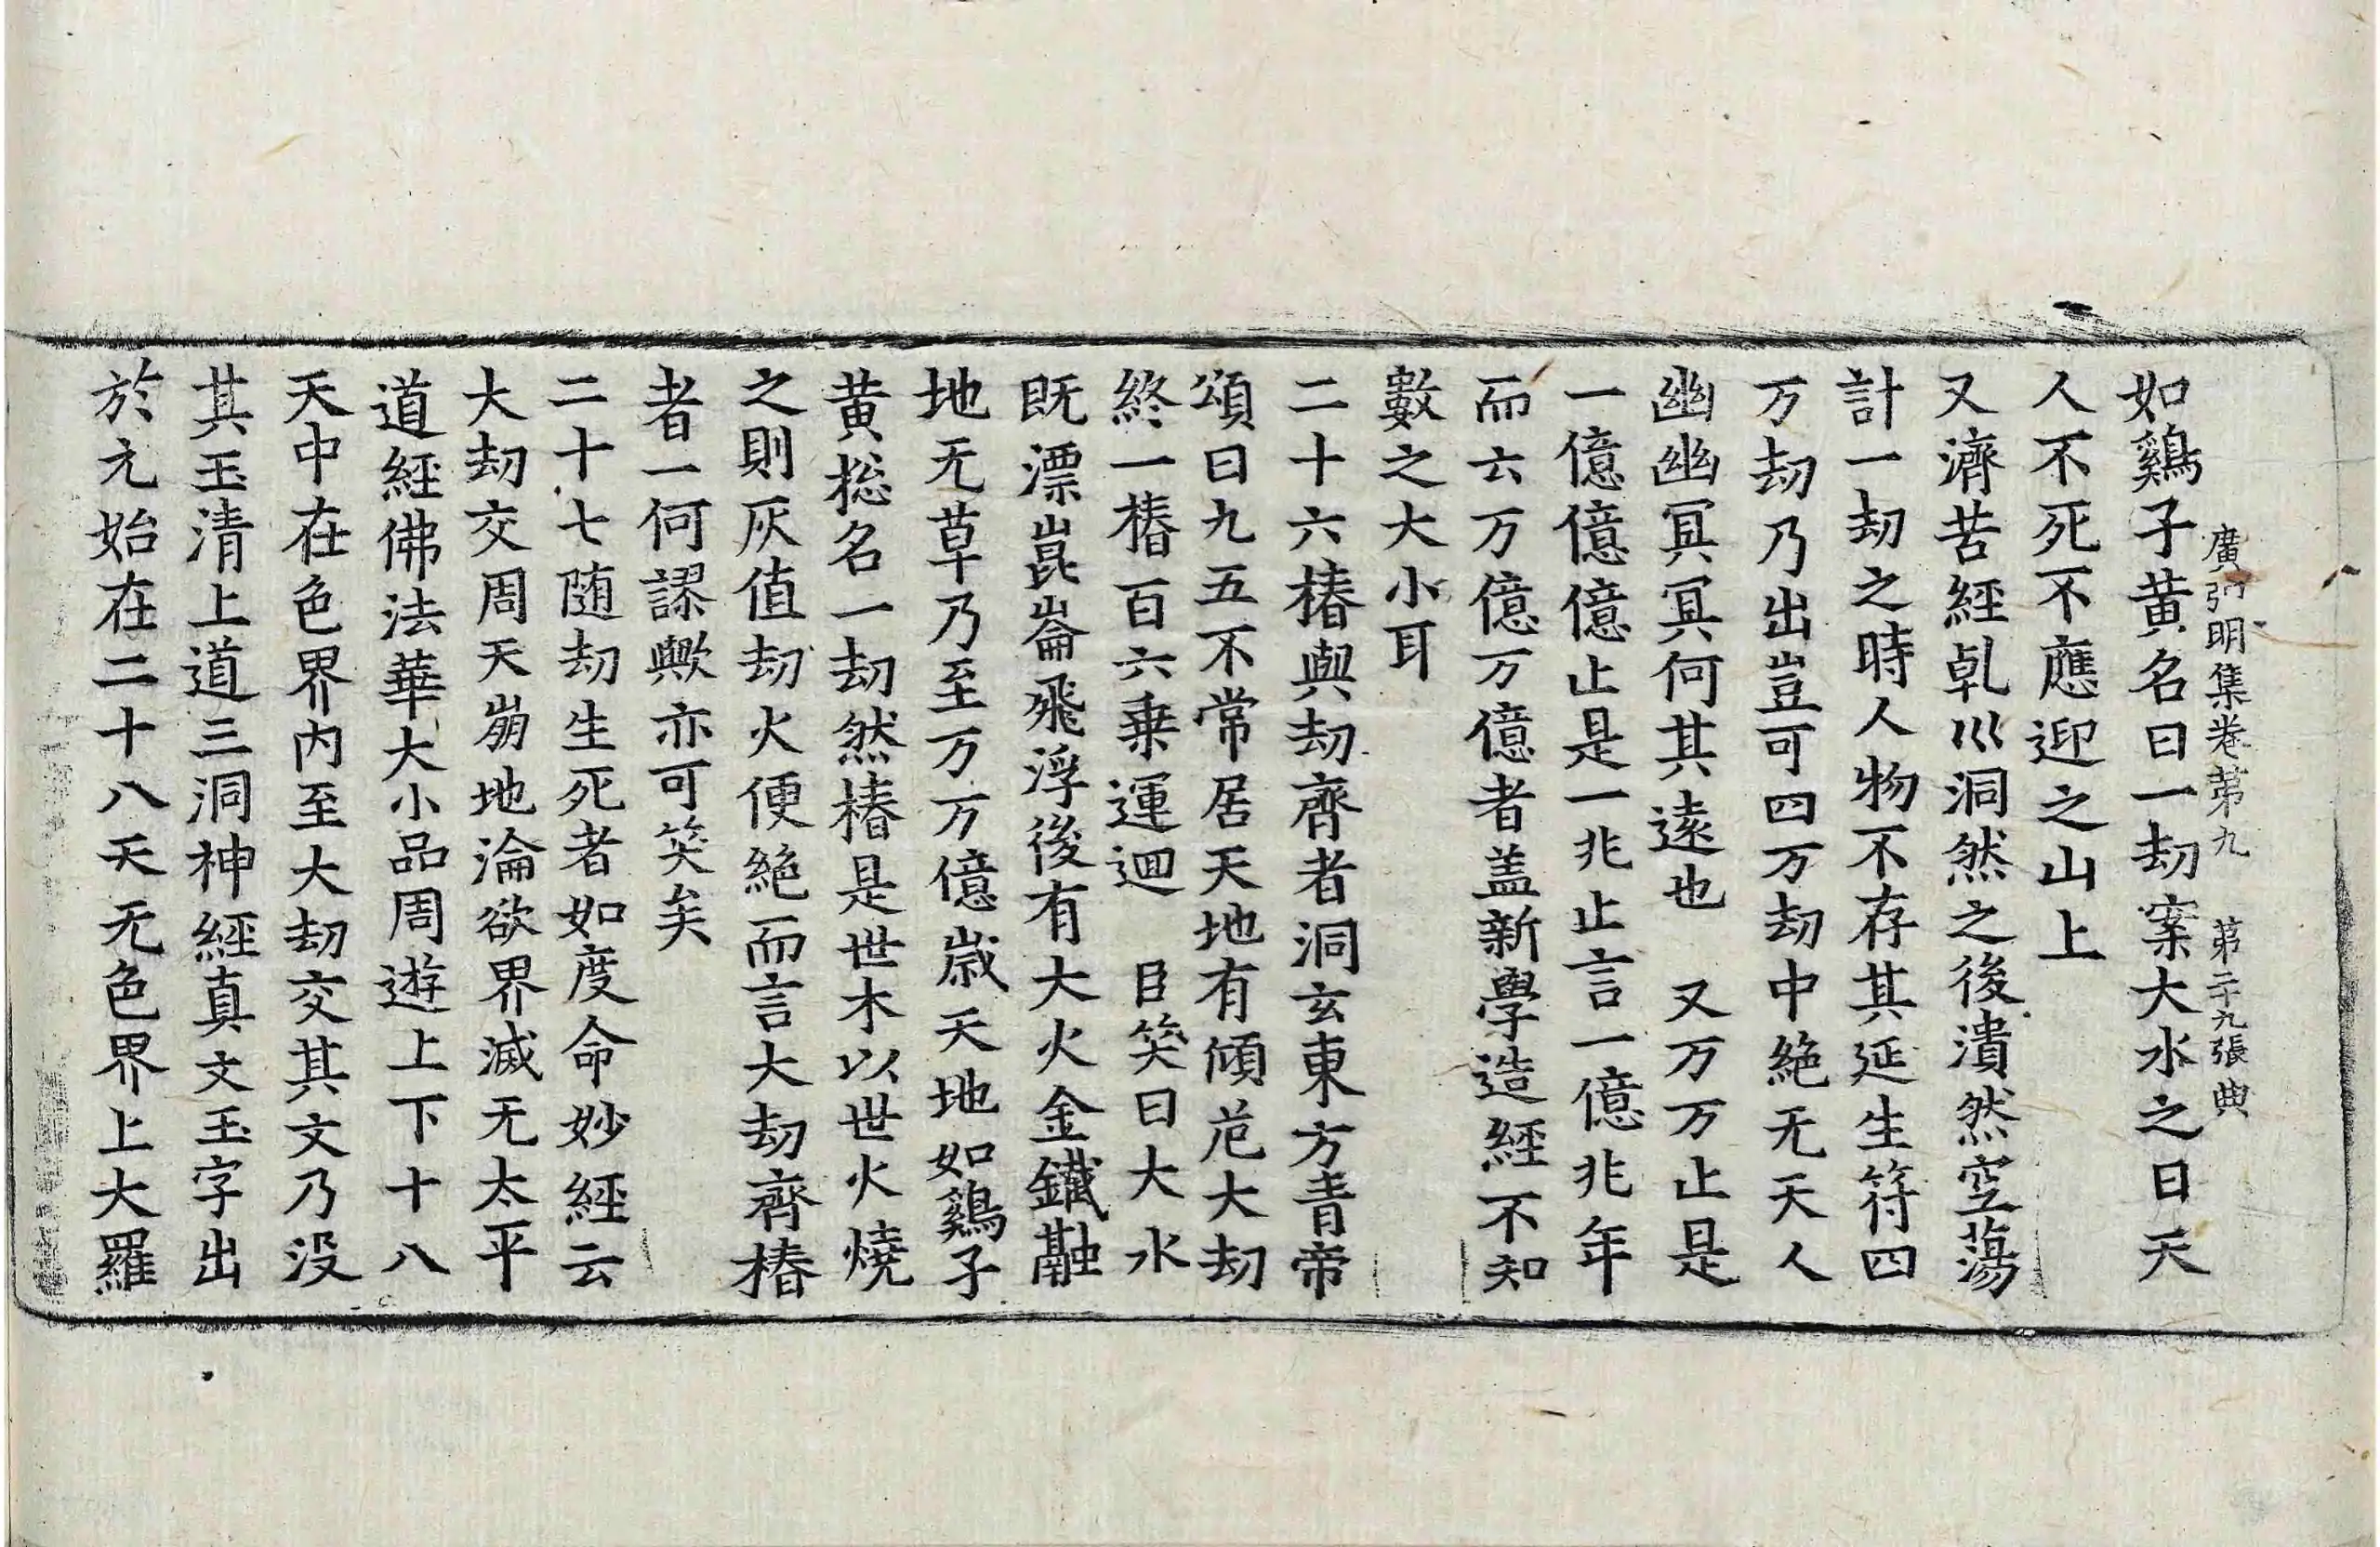 廣弘明集卷苐九　苐二十九張典
如鷄子黄名曰一刼案大水之日天
人不死不應迎之山上
又濟苦經乹巛洞然之後潰然空蕩
計一刼之時人物不存其延生符四
万刼乃出豈可四万刼中絶无天人
幽幽冥冥何其遠也　又万万止是
一億億億止是一兆止言一億兆年
而云万億万億者盖新學造經不知
數之大小耳
二十六椿與刼齊者洞玄東方青帝
頌曰九五不常居天地有傾危大刼
終一椿百六乗運迴　臣笑曰大水
既漂崑崙飛浮後有大火金鐵融
地无草乃至万万億歳天地如鷄子
黄捴名一刼然椿是世木以世火燒
之則灰值刼火便絶而言大刼齊椿
者一何謬歟亦可笑矣
二十七随刼生死者如度命妙經云
大刼交周天崩地淪欲界滅无太平
道經佛法華大小品周遊上下十八
天中在色界内至大刼交其文乃没
其玉清上道三洞神經真文玉字出
於元始在二十八天无色界上大羅